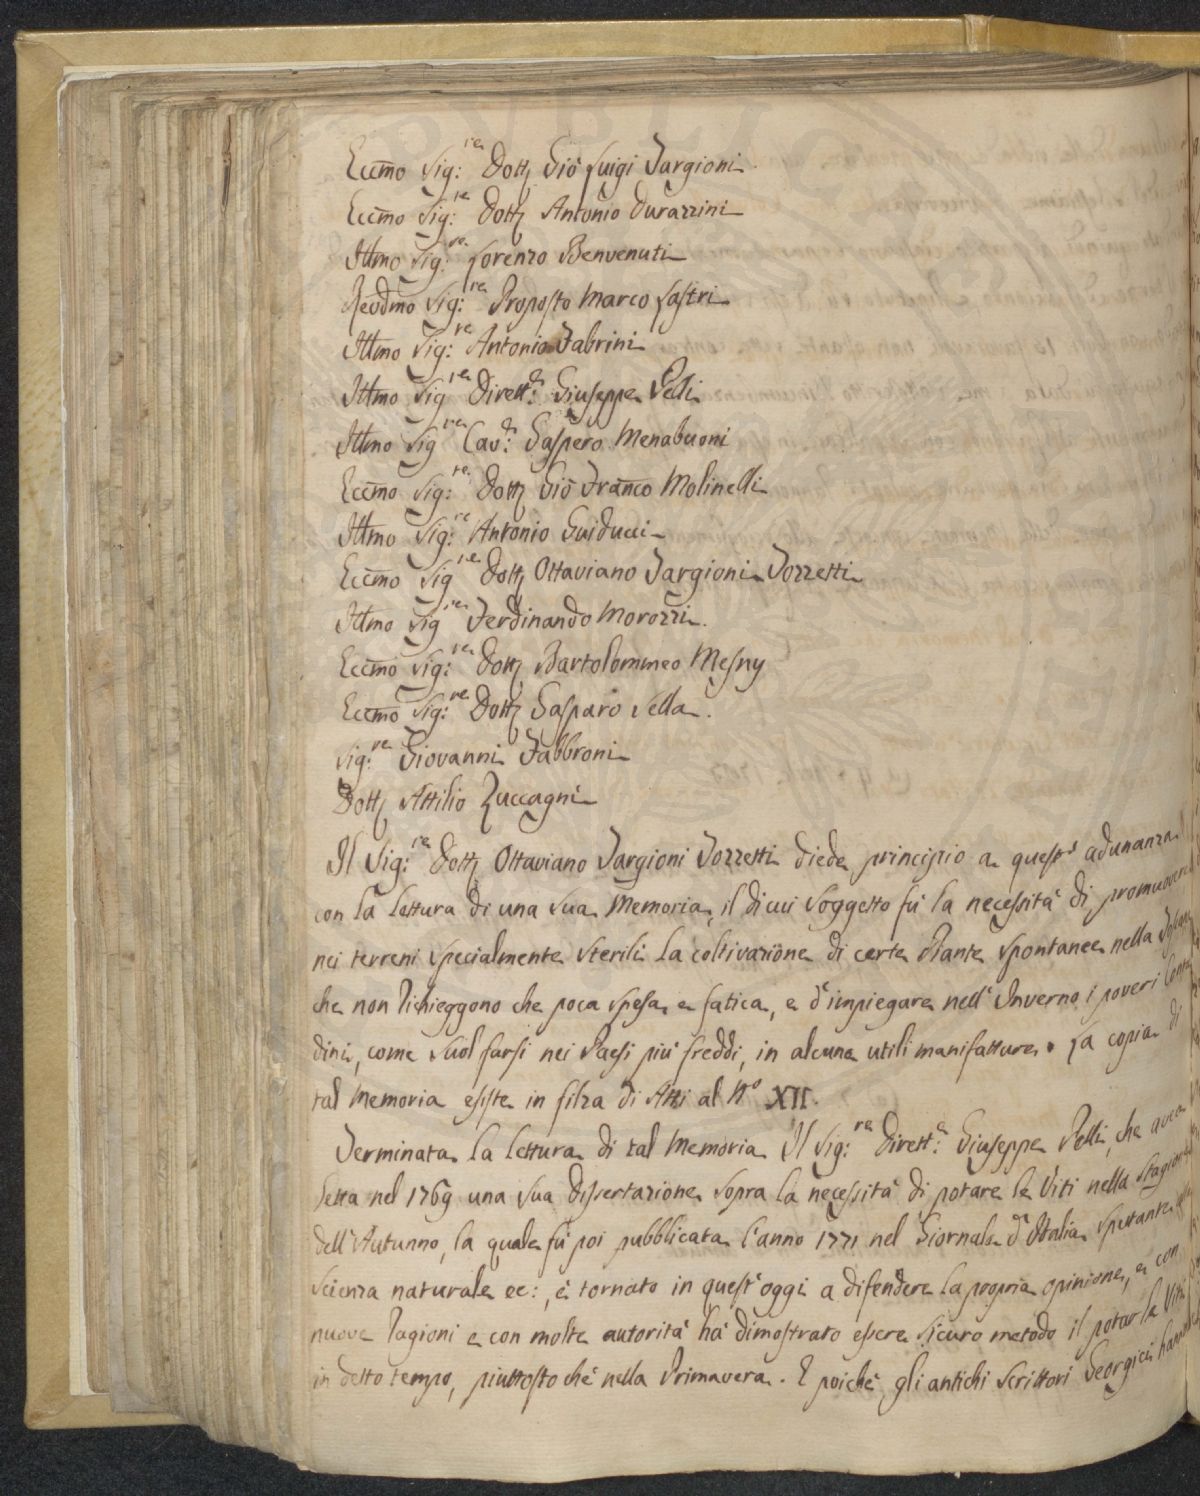 Eccmo Sig:re Dott Gio Luigi Targioni
Eccmo Sig:re Dott Antonio Durazzini
Illmo Sig:re Lorenzo Benvenuti
Revdmo Sig:re Proposto Marco Lastri
Illmo Sig:re Antonio Fabrini
Illmo Sig re Dirett:e Giuseppe Pelli
Illmo Sig re Cav:e Gaspero Menabuoni
Eccmo Sig:re Dott Gio Franco Molinelli
Illmo Sig:re Antonio Guiducci
Eccmo Sig re Dott Ottaviano Targioni Tozzetti
Illmo Sig re Ferdinando Morozzi.
Eccmo Sig:re Dott Bartolommeo Mesny
Eccmo Sig:re Dott Gasparo Sella.
Sig:re Giovanni Fabbroni
Dott Attilio Zuccagni
Il Sig:re Dott Ottaviano Targioni Tozzetti diede principio a quest' adunanza
con la lettura di una sua Memoria, il di cui soggetto fù la necessità di promuovere
nei terreni specialmente sterili la coltivazione di certe Piante spontanee nella
che non richieggono che poca spesa e fatica, e d'impiegare nell'Inverno i poveri Conta
dini, come suol farsi nei Paesi più freddi, in alcune utili manifatture. La copia di
tal Memoria esiste in filza di Atti al N° XII.
Terminata la lettura di tal Memoria Il Sig:re Dirett:e Giuseppe Pelli, che avea
letta nel 1769 una sua dissertazione sopra la necessità di potare le Viti nella stagione
dell'Autunno, la quale fù poi pubblicata l'anno 1771 nel Giornale d'Italia spettante
scienza naturale ec:, è tornato in quest'oggi a difendere la propria opinione, e con
nuove ragioni e con molte autorità hà dimostrato essere sicuro metodo il potar le Viti
in detto tempo, piuttosto che nella Primavera. E poichè gli antichi Scrittori Georgici hanno